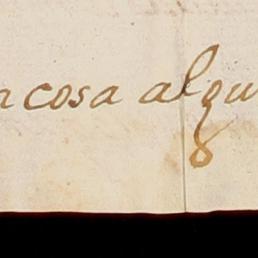 n cosa algu